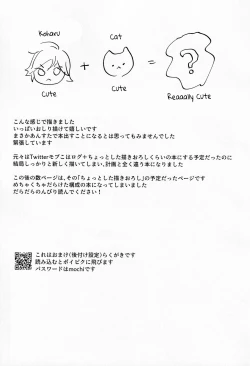 Koharu
Cat
+
=
?
Cute
Cute
Reaaally Cute
こんな感じで描きました
いっぱいおしり描けて嬉しいです
まさかあんすたで本出すことになるとは思ってもみませんでした
緊張しています
元々はTwitterモブこはログ+ちょっとした描きおろしくらいの本にする予定だったのに
結局しっかりと新しく描いてしまい、計画と全く違う本になりました
この後の数ページは、その「ちょっとした描きおろし」の予定だったページです
めちゃくちゃだらけた構成の本になってしまいました
だらだらのんびり読んでください!
これはおまけ(後付け設定)らくがきです
読み込むとポイピクに飛びます
パスワードはmochiです